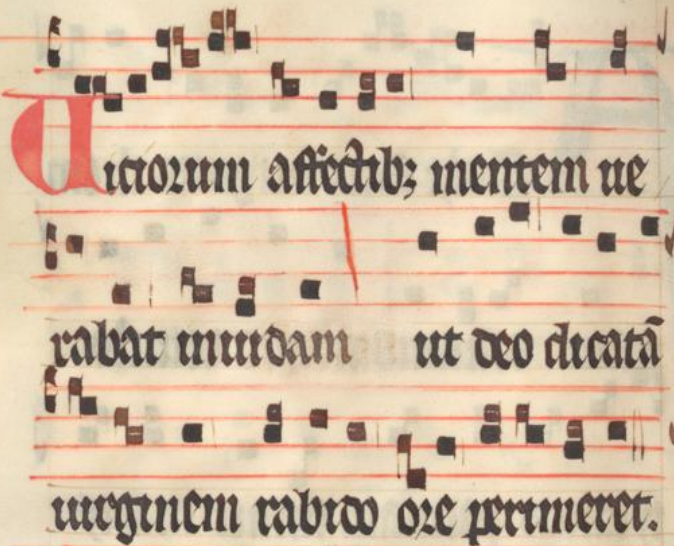 Uiciorum affectibꝫ mentem ue
rabat inuidam ut deo dicatā
uirginem rabido ore perimeret.